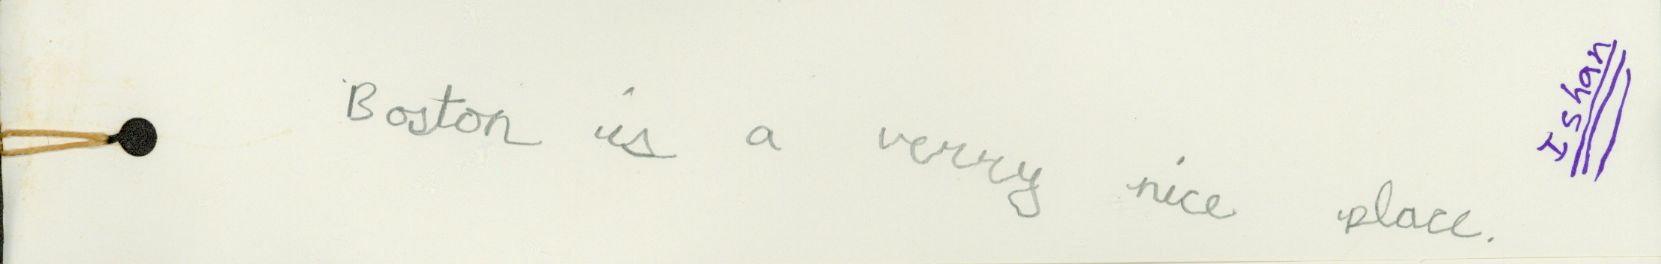 Boston is a verry nice place.
Ishan